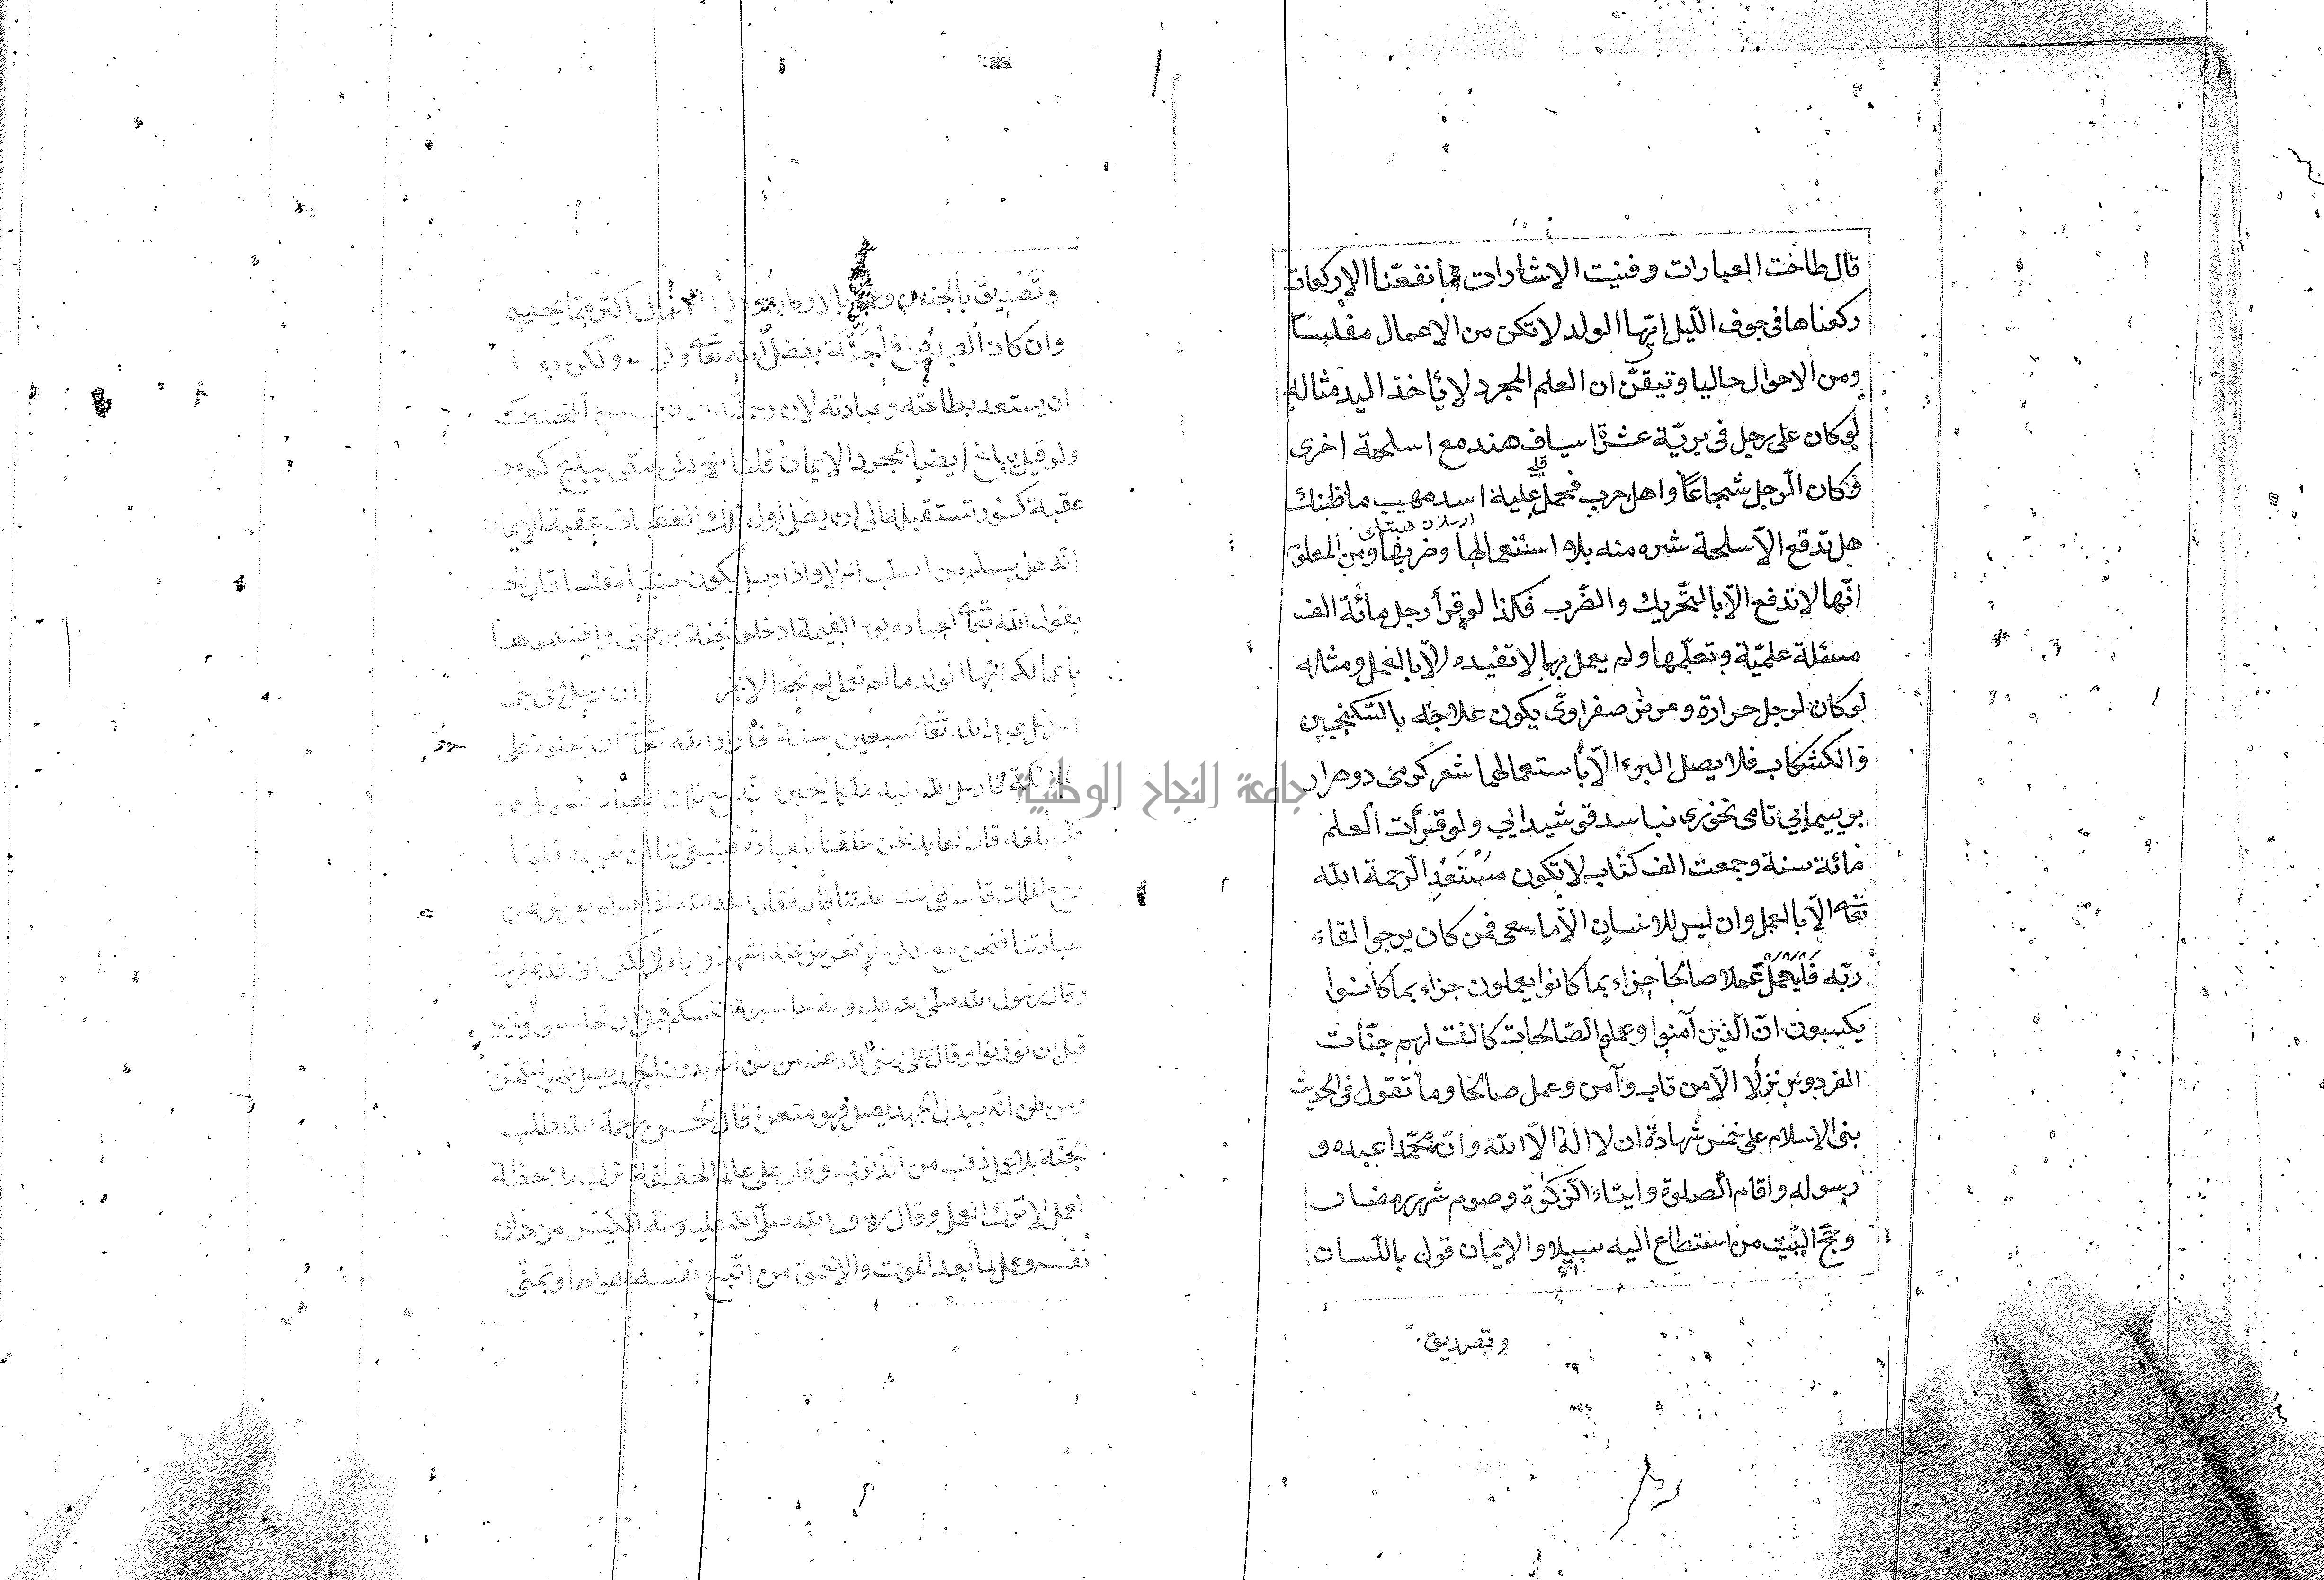 قال طاخت العبارات وفنيت الاشارات ما نفعنا الا ركعات
ركعناها فى جوف الليل ايها الولد لا تكن من الاعمال مفلسا
ومن الاحوال خاليا وتيقن ان العلم المجرد لا يأخذ اليد مثاله
لو كان على رجل فى برية عشرة اسياف هند مع اسلحة اخرى
وكان الرجل شجاعا واهل حرب فحمل عليه اسد مهيب ما ظنك
هل تدفع الاسلحة شره منه بلا استعمالها وضربها ومن المعلوم
انها لا تدفع الا بالتحريك والضرب فكذا لو قرأ رجل مائة الف
مسئلة علمية وتعلمها ولم يعمل بها لا تفيده الا بالعمل ومثاله
لو كان لرجل حرارة ومرض صفراوى يكون علاجه بالسكنجبين
والكشكاب فلا يصل البرء الا باستعمالهما شعر كر مى دو هزار
ولو قرأت العلم
مائة سنة وجمعت الف كتاب لا تكون مستعد الرحمة الله
تعالى الا بالعمل وان ليس للانسان الا ما سعى فمن كان يرجوا لقاء
ربه فليعمل عملا صالحا جزاء بما كانوا يعملون جزاء بما كانوا
يكسبون ان الذين آمنوا وعملوا الصالحات كانت لهم جنات
الفردوس نزلا الا من تاب وآمن وعمل صالحا وما تقول فى الحديث
بنى الاسلام على خمس شهادة ان لا اله الا الله وان محمدا عبده و
رسوله واقام الصلوة وايتاء الزكوة وصوم شهر رمضان
وحج البيت من استطاع اليه سبيلا والايمان قول باللسان
وتصديق
وتصديق بالجنان وعمل بالاركان الاعمال اكثر مما يحصى
وان كان العبد يبلغ الجنة بفضل الله تعالى ولكن بعد
ان يستعد بطاعته وعبادته لان رحمة الله قريب من المحسنين
ولو قيل يبلغ ايضا بمجرد الايمان قلنا نعم لكن متى يبلغ كم من
عقبة كئود تستقبله الى ان يصل اول تلك العقبات عقبة الايمان
انه هل يسلم من السلب ام لا واذا وصل يكون جنتيا مفلسا قال الحسن
يقول الله تعالى لعباده يوم القيمة ادخلوا الجنة برحمتى واقتسموها
باعمالكم ايها الولد ما لم تعمل لم تجد الاجر ان رجلا فى بنى
اسرائيل عبد الله تعالى سبعين سنة فاراد الله تعالى ان يجلوه على
الملائكة فارسل الله اليه ملكا يخبره
فلما بلغه قال العابد نحن خلقنا للعبادة فينبغى لنا ان نعبده فلما
رجع الملك
عبادتنا فنحن مع الكرم لا نعرض عنه اشهدوا يا ملائكتى انى قد غفرت
وقال رسول الله صلى الله عليه وسلم حاسبوا انفسكم قبل ان تحاسبوا وزنوا
قبل ان توزنوا وقال على رضى الله عنه من ظن انه بدون الجهد يصل فهو متمن
ومن ظن انه ببذل الجهد يصل فهو متعن قال الحسن رحمة الله طلب
الجنة بلا عمل ذنب من الذنوب وقال على عالم الحقيقة ترك ملاحظة
العمل لا ترك العمل وقال رسول الله صلى الله عليه وسلم الكيس من دان
نفسه وعمل لما بعد الموت والاحمق من اتبع نفسه هواها وتمنى
جامعة النجاح الوطنية